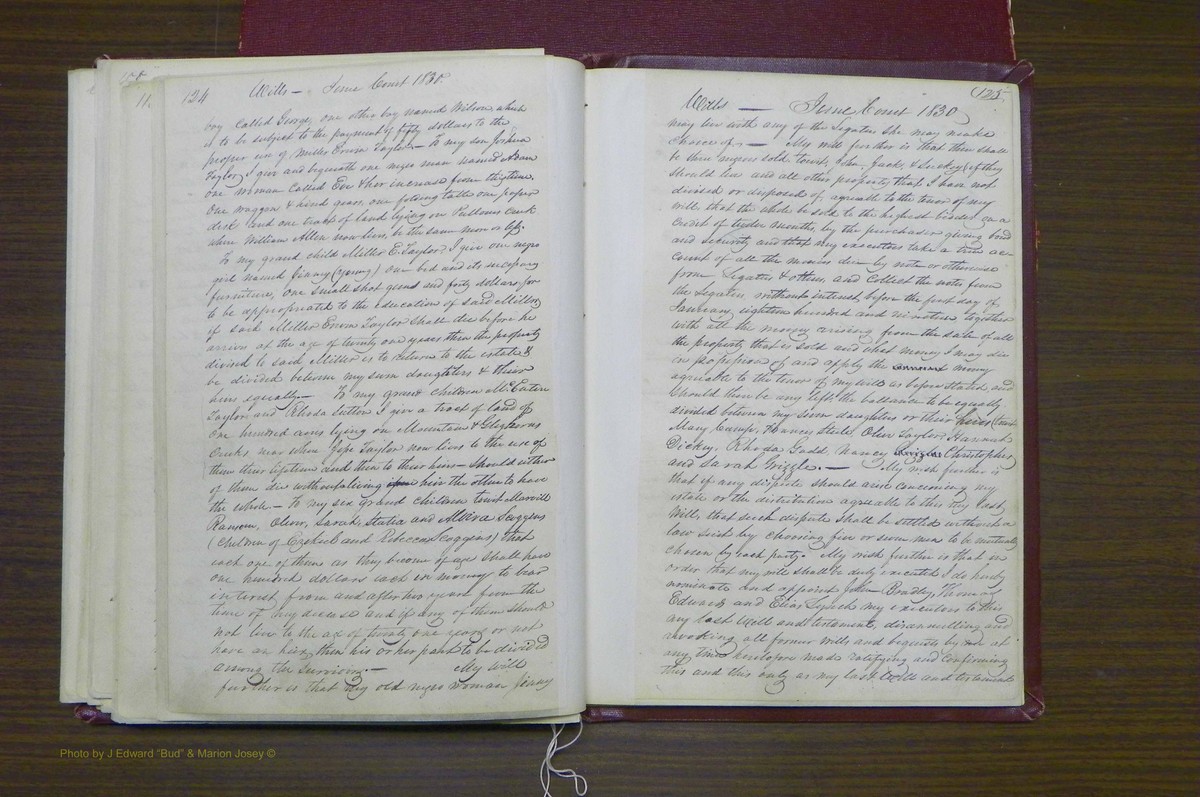 124 Wills — June Court 1830.
boy Called George, one other boy named Wilson, which
is to be subject to the payment of fifty dollars to the
proper use of Miller Erwin Taylor — To my son Joshua
Taylor, I give and bequeath one negro man named Adam
one woman Called Eve & her increase from this time,
One waggon & hind gears, one folding table one paper
desk and one tract of land lying on Pulloms Creek
where William Allen now lives, be the same more or less.
To my grand child Miller E. Taylor, I give one negro
girl named Vinny (young) one bed and its necessary
furniture, one small shot gun and forty dollars, for
to be appropriated to the education of said Miller,
if said Miller Erwin Taylor shall die before he
arrives at the age of twenty one years then the property
divised to said Miller is to return to the estate &
be divided between my seven daughters & their
heirs equally. — To my grand children
Taylor and Rhoda Sutton I give a tract of land of
one hundred acres lying on Mountain &
Creeks, near where Jesse Taylor now lives to the use of
them their lifetime and then to their heirs — Should either
of them die without a living heir the other to have
the whole — To my six grand children to wit Merrill
Ransom, Oliver, Sarah, Statia and Alvira Scoggins
(Children of Ezekiel and Rebecca Scoggins) that
each one of them as they become of age shall have
one hundred dollars each in money to bear
interest from and after two years from the
time of my decease and if any of them should
not live to the age of twenty one years or not
have an heir, then his or her part to be divided
among the survivors. — My will
further is that my old negro woman Jinny
125
Wills — June Court 1830
may live with any of the Legatees she may make
choice of; — My will further is that there shall
be three negroes sold towit, John, Jack, & Luckey (if they
should live and all other property that I have not
divided or disposed of, agreable to the tenor of my
will that the whole be sold to the highest bidder on a
credit of twelve months, by the purchaser giving bond
and security and that my executors take a true ac=
count of all the monies due by note or otherwise
from Legatees & others, and Collect the notes from
the Legatees without interest before the first day of
January eighteen hundred and nineteen, together
with all the money arising from the sale of all
the property that is sold and what money I may die
in possession of and apply the money
agreable to the tenor of my will as before stated, and
should there be any left, the ballance to be equally
divided between my seven daughters or their heirs (towit
Mary Camp, Frances Steele, Olive Taylor, Hannah
Dickey, Rhoda Gadd, Nancy Christopher
and Sarah Grizzle. — My wish further is
that if any dispute should arise concerning my
estate or the distribution agreable to this my last
Will, that such dispute shall be settled without a
law suit by choosing five or seven men to be mutually
chosen by each party. My wish further is that in
order that my will shall be duly executed I do hereby
nominate and appoint John Bradley Thomas
Edwards and Elias Lynch my executors to this
my last Will and testament, disannulling and
revoking all former wills and bequests by me at
any time heretofore made ratifying and confirming
this and this only as my last Will and testament
Photo by J Edward "Bud" & Marion Josey ©